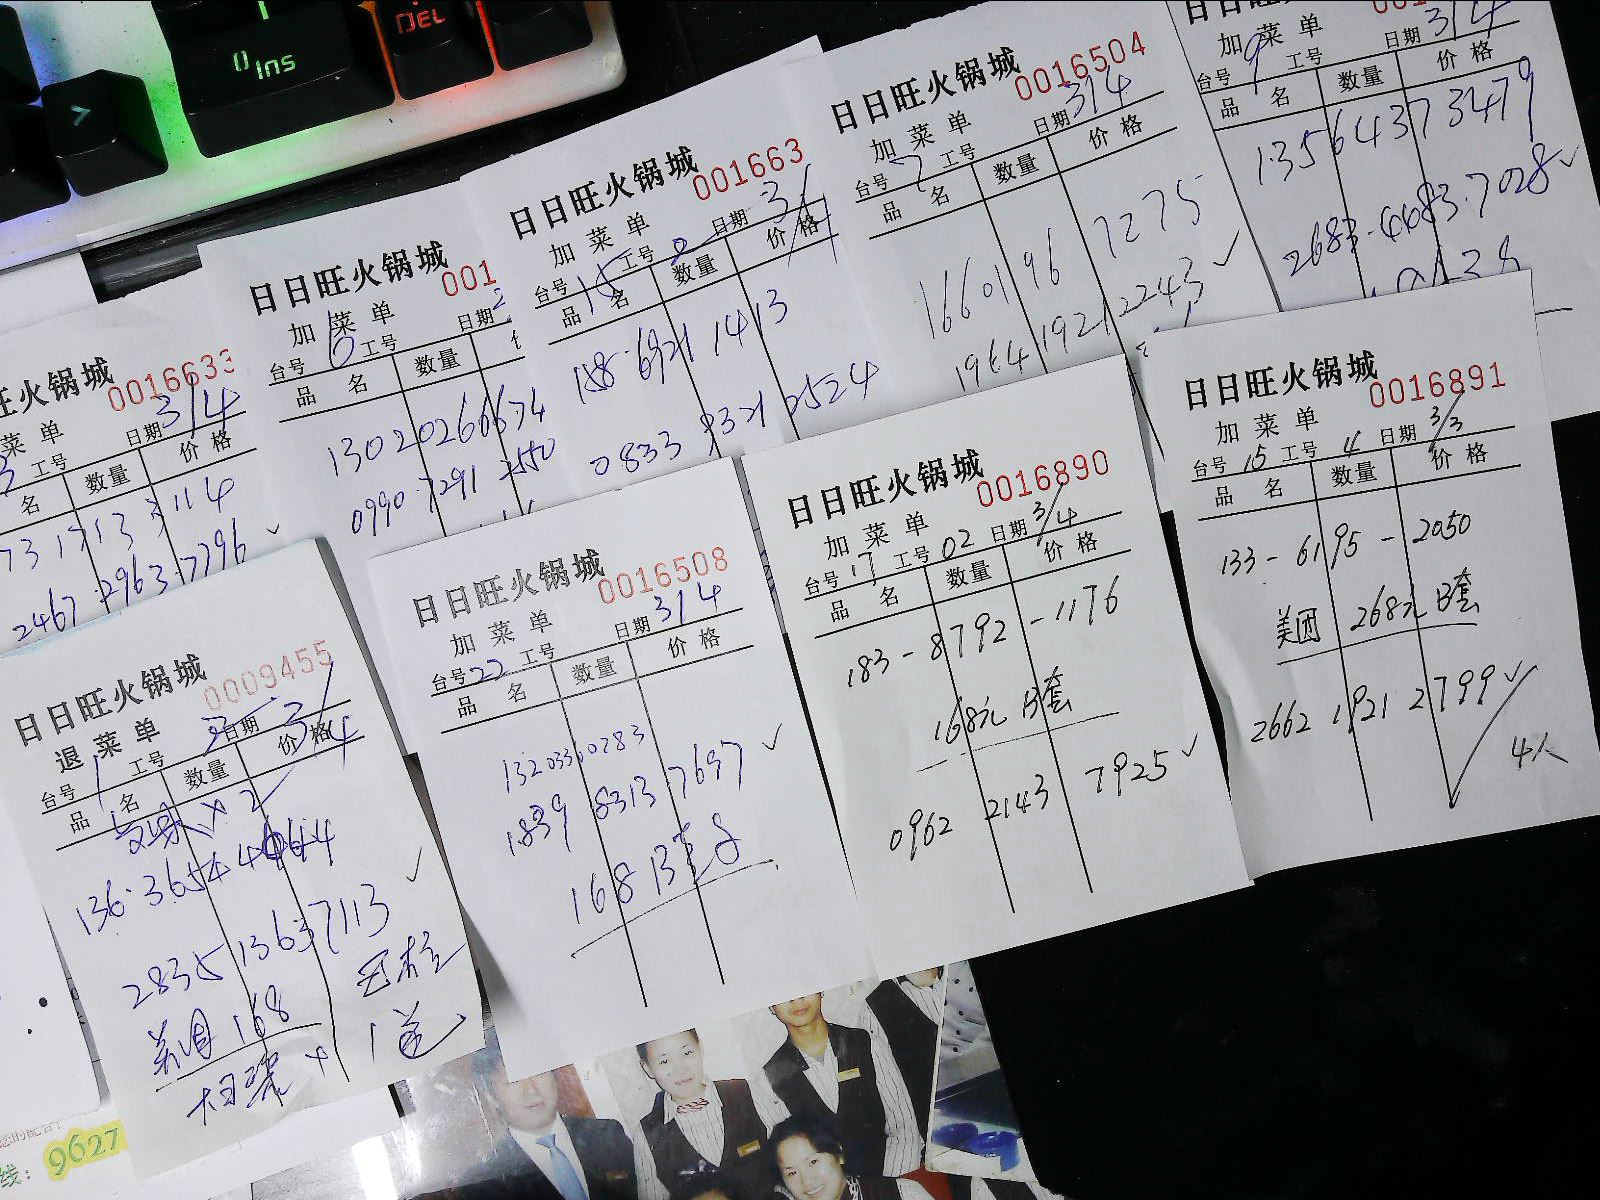 DEL
0 Ins
>
日日旺火锅城
加菜单
日期 3/4
台号 9 工号
品名 数量 价格
135 6437 3479
2683.4483.7028 ✓
日日旺火锅城 0016504
加菜单 日期 3/4
台号 7 工号
品名 数量 价格
166 0196 7275
1964 1921 2243 ✓
日日旺火锅城 001663
加菜单 日期 3/4
台号 15 工号 2
品名 数量 价格
158.6921 1413
0833 9321 2524
日日旺火锅城 001
加菜单 日期
台号 10 工号
品名 数量
130 2026 6674
0990.7291 2550
旺火锅城 0016633
菜单 日期 3/4
工号
名 数量 价格
73 1713 3114
2467.2963.7796 ✓
日日旺火锅城 0016891
加菜单 日期 3/3
台号 15 工号 4
品名 数量 价格
133-6195-2050
美团 268元B套
2662 1921 2799 ✓
4人
日日旺火锅城 0016890
加菜单 日期 3/4
台号 17 工号 02
品名 数量 价格
183-8792-1176
168元 B套
0962 2143 7925 ✓
日日旺火锅城 0016508
加菜单 日期 3/4
台号 22 工号
品名 数量 价格
13203360283
1839 8313 7697 ✓
168 B套
日日旺火锅城 0009455
退菜单 日期 3/4
台号 1 工号
品名 数量 价格
136.3654 4644
2835 1363 7113 ✓
美团 168
1送
线: 9627